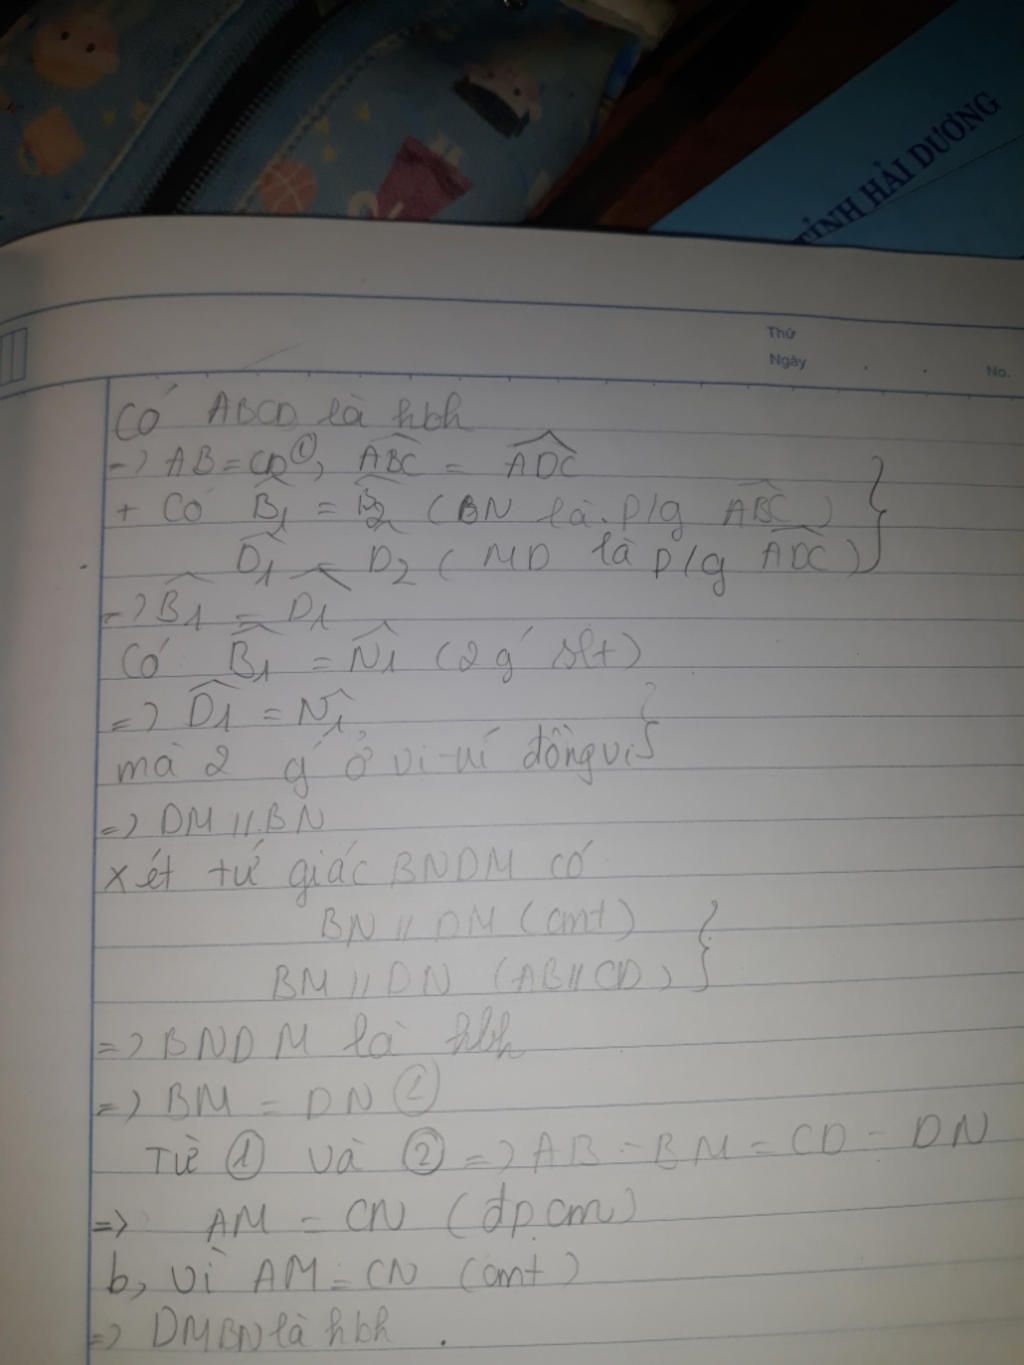 TỈNH HẢI DƯƠNG
Thứ
Ngày
No.
Có ABCD là hbh
=> AB = CD ①, ABC = ADC
+ Có B1 = B2 (BN là p/g ABC)
D1 = D2 (MD là p/g ADC)
=> B1 = D1
Có B1 = N1 (2 gí slt)
=> D1 = N1,
mà 2 gí ở vi-uí đồng vi
=> DM // BN
xét tứ giác BNDM có
BN // DM (cmt)
BM // DN (AB // CD)
=> BNDM là hbh
=> BM = DN ②
Từ ① và ② => AB - BM = CD - DN
=> AM = CN (đpcm)
b, vì AM = CN (cmt)
=> DMBN là hbh .